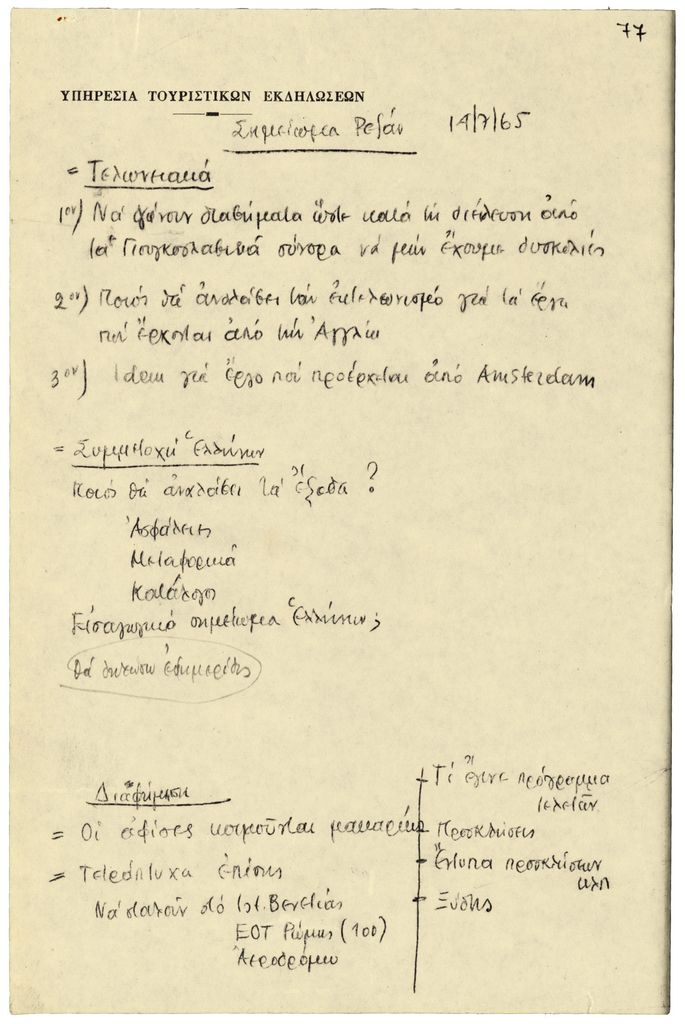 77
ΥΠΗΡΕΣΙΑ ΤΟΥΡΙΣΤΙΚΩΝ ΕΚΔΗΛΩΣΕΩΝ
Σημείωμα Ρεζάν 14/7/65
= Τελωνειακά
1ον) Νά γίνουν διαβήματα ὥστε κατά τή διέλευση ἀπό
τά Γιουγκοσλαβικά σύνορα νά μήν ἔχουμε δυσκολίες
2ον) Ποιός θά ἀναλάβει τόν ἐκτελωνισμό γιά τά ἔργα
πού ἔρχονται ἀπό τήν Ἀγγλία
3ον) Idem γιά ἔργο πού προέρχεται ἀπό Amsterdam
= Συμμετοχή Ἑλλήνων
Ποιός θά ἀναλάβει τά ἔξοδα ?
Ἀσφάλειες
Μεταφορικά
Κατάλογοι
Εἰσαγωγικό σημείωμα Ἑλλήνων;
θά ἐφημερίδες
Διαφήμιση
= Οἱ ἀφίσες κοιμοῦνται μακαρίως
= Τετράπτυχα ἐπίσης
Νά σταλοῦν στό Ist. Βενετίας
ΕΟΤ Ρώμης (100)
Ἀεροδρόμιο
Τί ἔγινε πρόγραμμα
τελετῶν
Προσκλήσεις
Ἔντυπα προσκλήσεων
κλπ
Ξύδης